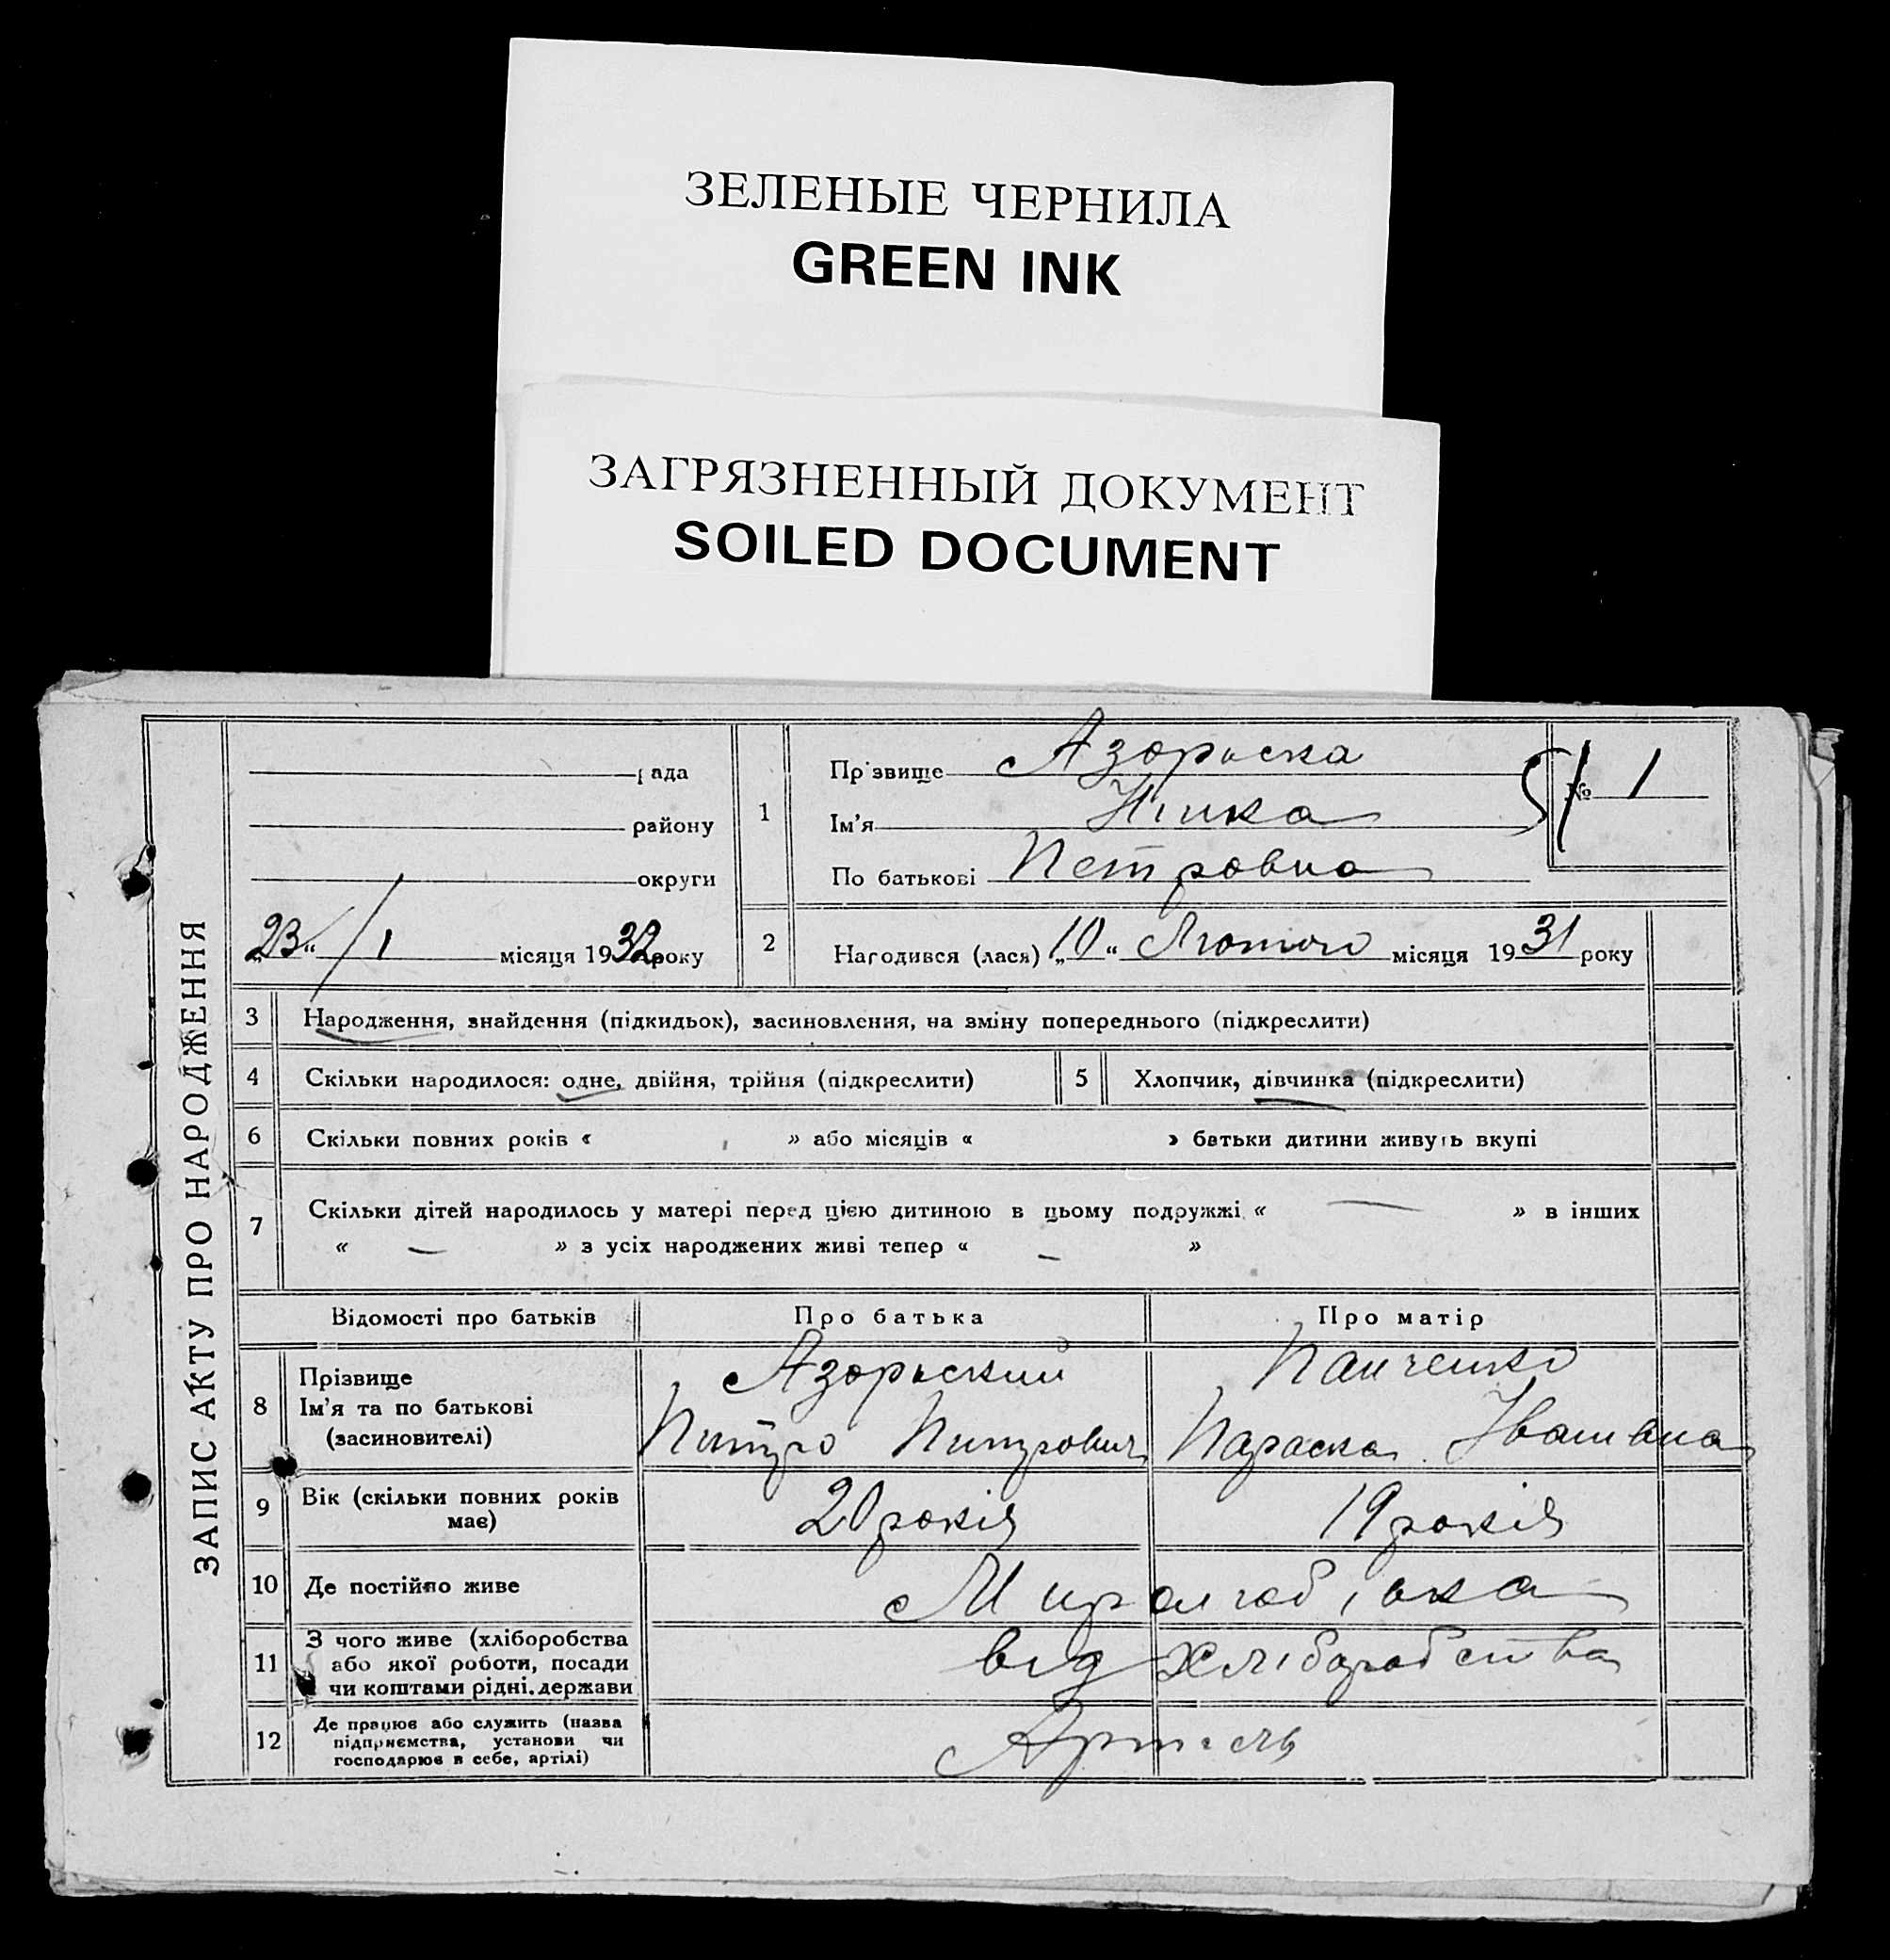 ЗЕЛЕНЫЕ ЧЕРНИЛА
GREEN INK
ЗАГРЯЗНЕННЫЙ ДОКУМЕНТ
SOILED DOCUMENT
ЗАПИС АКТУ ПРО НАРОДЖЕННЯ
рада
району
округи
„23“ / 1 місяця 1932 року
1
Прізвище Азорьска
Ім’я Нінка
По батькові Петровна
№ 1
2
Народився (лася) „10“ Лютого місяця 1931 року
3 Народження, знайдення (підкидьок), засиновлення, на зміну попереднього (підкреслити)
4 Скільки народилося: одне, двійня, трійня (підкреслити)
5 Хлопчик, дівчинка (підкреслити)
6 Скільки повних років « » або місяців « » батьки дитини живуть вкупі
7 Скільки дітей народилось у матері перед цією дитиною в цьому подружжі « — » в інших
« — » з усіх народжених живі тепер « — »
Відомості про батьків Про батька Про матір
8
Прізвище
Ім’я та по батькові
(засиновителі)
Азорьский
Питро Питрович
Панченко
Параска Івановна
9
Вік (скільки повних років
має)
20 років 19 років
10 Де постійно живе
11
З чого живе (хліборобства
або якої роботи, посади
чи коштами рідні. держави
від хліборобства
12
Де працює або служить (назва
підприємства, установи чи
господарює в себе, артілі)
Артель